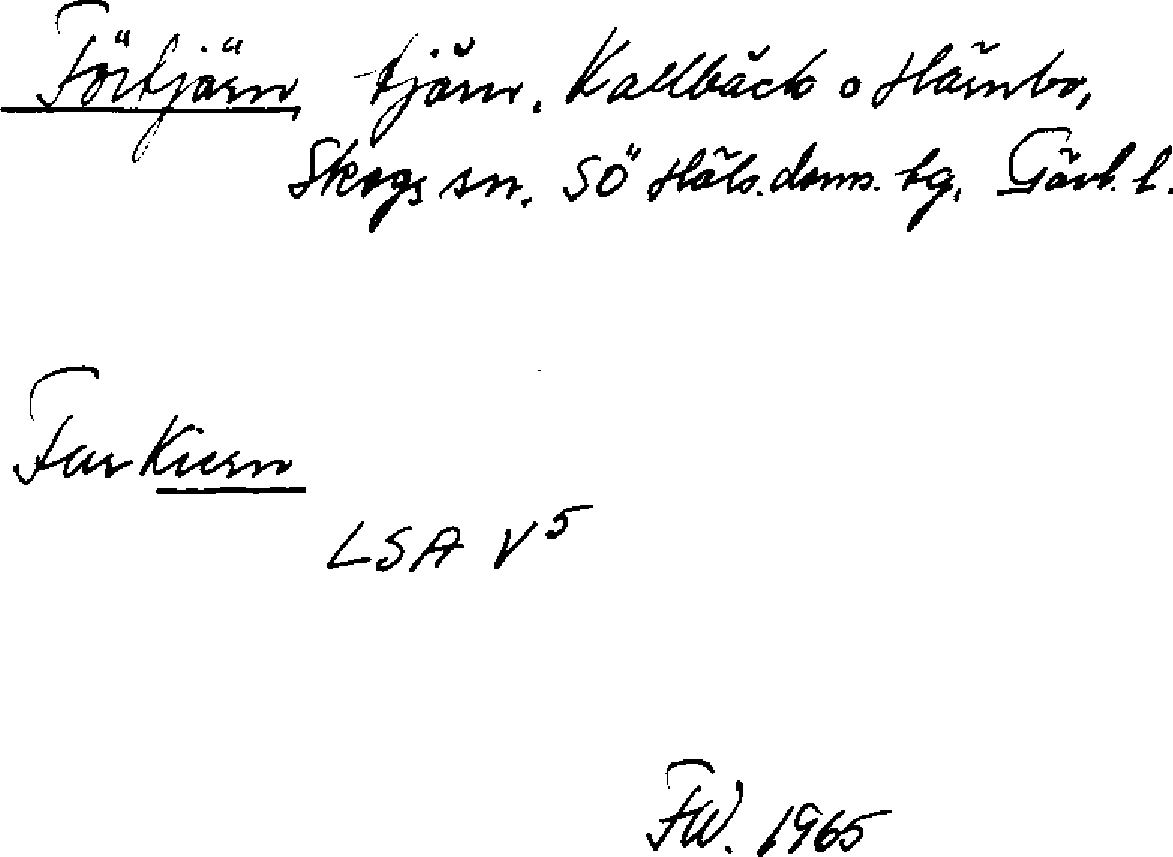 Förtjärn tjärn. Kallbäck o Härnbo,
Skogs sn. SÖ Häls. doms. tg. Gävl. l.
Far Kiern
LSA V5
FW. 1965